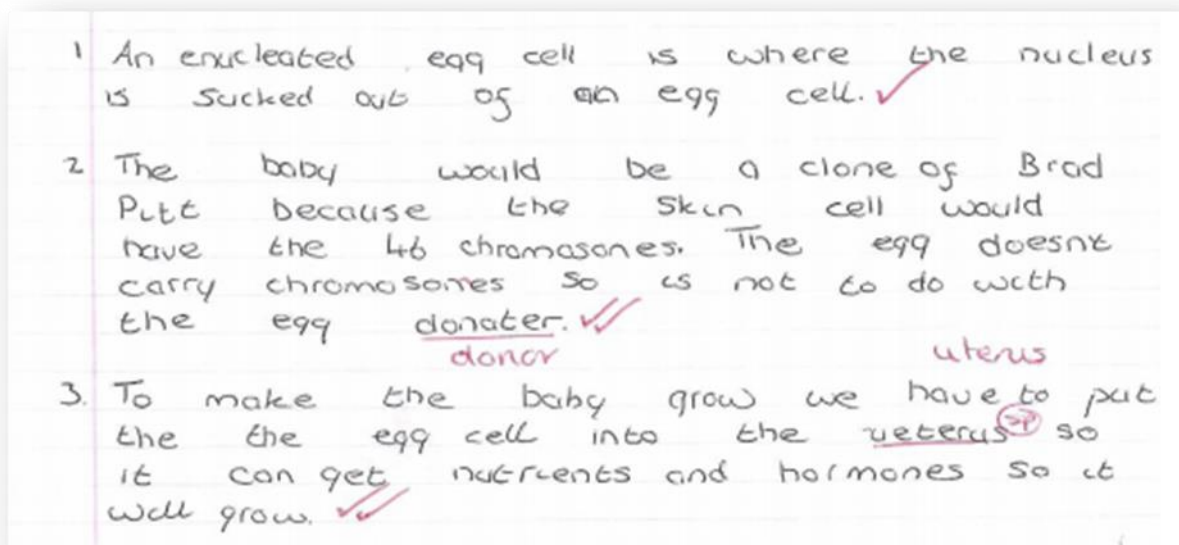 1 An enucleated egg cell is where the nucleus
is sucked out of an egg cell.
2 The baby would be a clone of Brad
Pitt because the skin cell would
have the 46 chromosones. The egg doesnt
carry chromosomes so is not to do with
the egg donater.
donor
uterus
3. To make the baby grow we have to put
the the egg cell into the ueterus sp so
it can get nutrients and hormones so it
will grow.